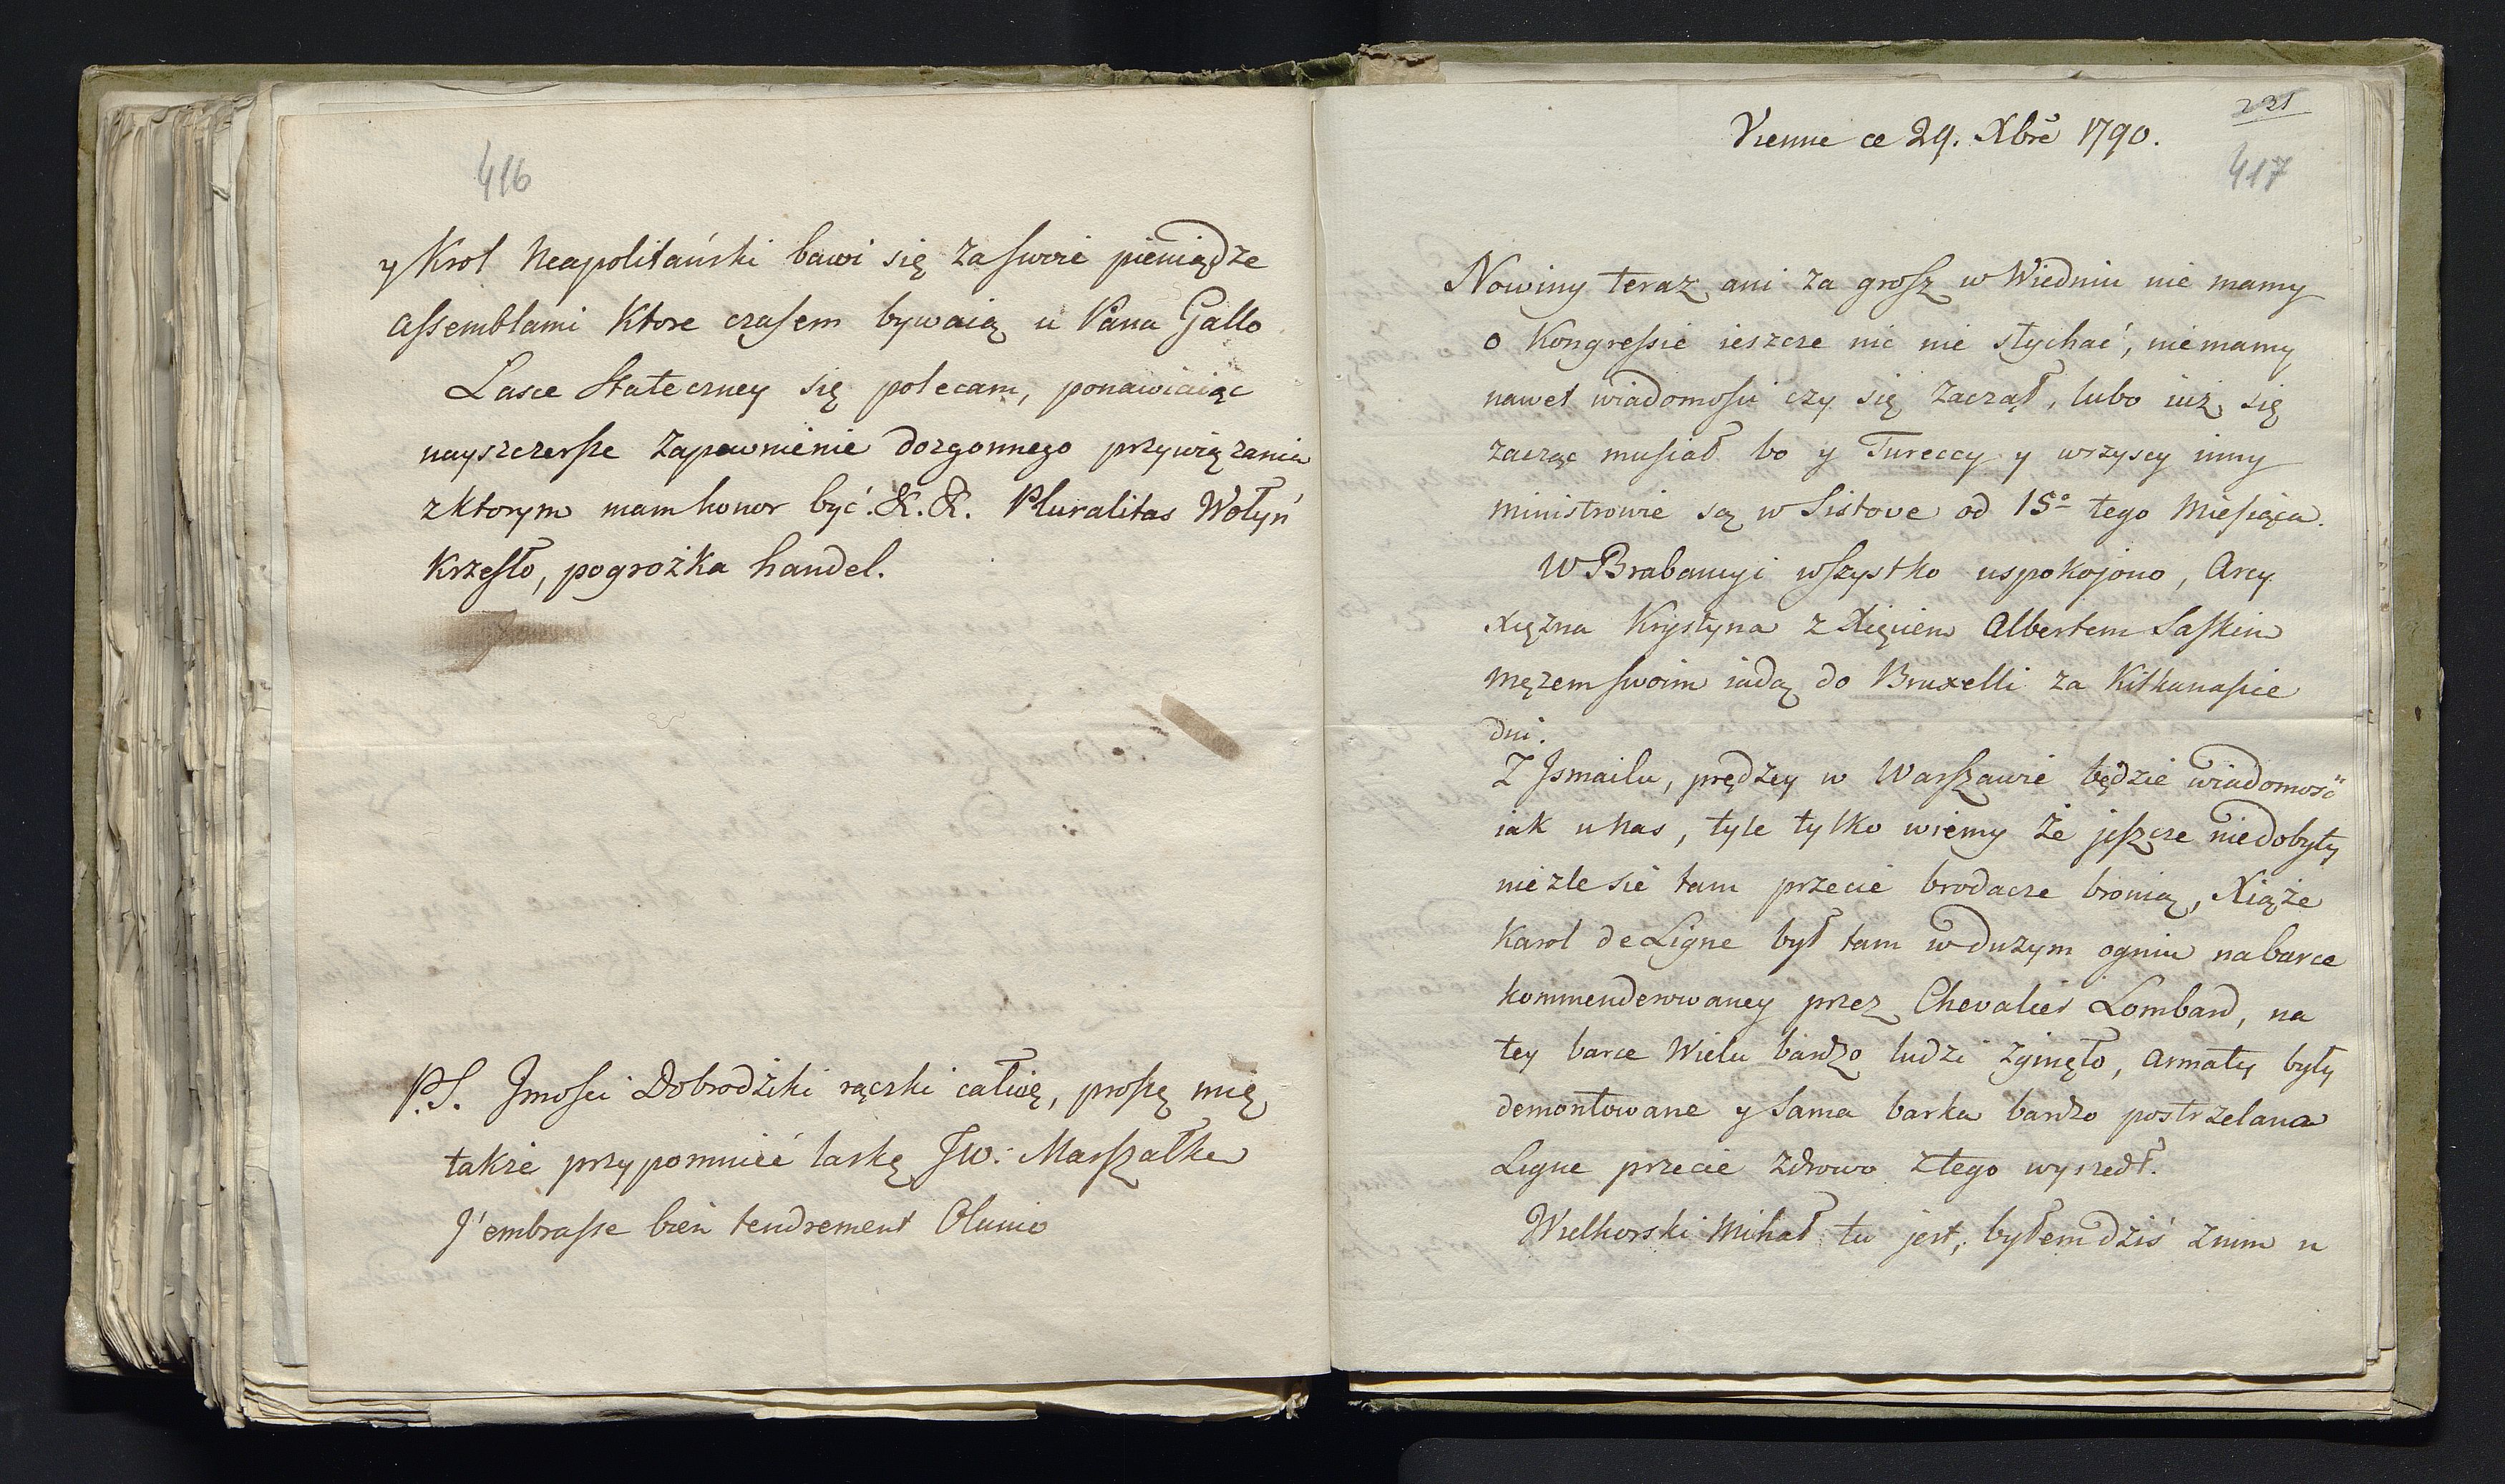 416
y Krol Neapolitański bawi się za swoie pieniądze
assemblami Ktore czasem bywaią u Pana Gallo
Łasce Stateczney się polecam, ponawiaiąc
nayszczersze Zapewnienie dozgonnego przywiązania
z ktorym mam honor być. &. &. Pluralitas Wołyń
Krzesło, pogrożka handel.
P.S. Jmości Dobrodziki rączki całuię, proszę mię
także przypomnieć łaskę JW: Marszałka
J'embrasse bien tendrement Olunio
231
Vienne ce 29. Xbre 1790.
417
Nowiny teraz ani za grosz w Wiedniu nie mamy
o Kongressie ieszcze nic nie słychać, niemamy
nawet wiadomości czy się zaczął, lubo iuż się
zacząc musiał bo y Tureccy y wszyscy inny
ministrowie są w Sistove od 15º tego Miesiąca.
W Brabancyi wszystko uspokojono, Arcy
xiężna Krystyna z Xięciem Albertem Saskim
mężem swoim iadą do Bruxelli za Kilkanaście
dni.
Z Jsmailu, prędzey w Warszawie będzie wiadomość
iak u nas, tyle tylko wiemy że jeszcze niedobyty
nieźle sie tam przecie brodacze bronią, Xiąże
Karol de Ligne był tam w dużym ogniu na barce
kommenderowaney przez Chevalier Lombard, na
tey barce Wielu bardzo ludzi zginęło, armaty były
demontowane y sama barka bardzo postrzelana
Ligne przecie zdrowo z tego wyszedł.
Wielhorski Michał tu jest, byłem dziś z nim u